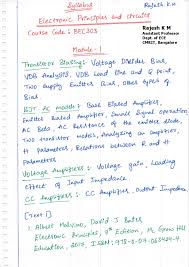 Syllabus
Rajesh K M
Electronic Principles and circuits
Course Code : BEC303
Rajesh K M
Assistant Professor
Dept. of ECE
CMRIT, Bangalore
Module-1
Transistor Biasing: Voltage Divider Bias,
VDB Analysis, VDB Load line and Q point,
Two supply Emitter Bias, other types of
Bias.
BJT AC models: Base Biased Amplifier,
Emitter Biased Amplifier, Small Signal Operation,
AC Beta, AC Resistance of the emitter diode,
Two transistor models, Analyzing an amplifier,
H Parameters, Relations between R and
H Parameters.
Voltage Amplifiers: Voltage gain, Loading
Effect of Input Impedance
CC Amplifiers: CC Amplifier, Output Impedance.
[Text 1]
1. Albert Malvino, David J Bates,
Electronic Principles, Edition, Mc Graw Hill
Education,